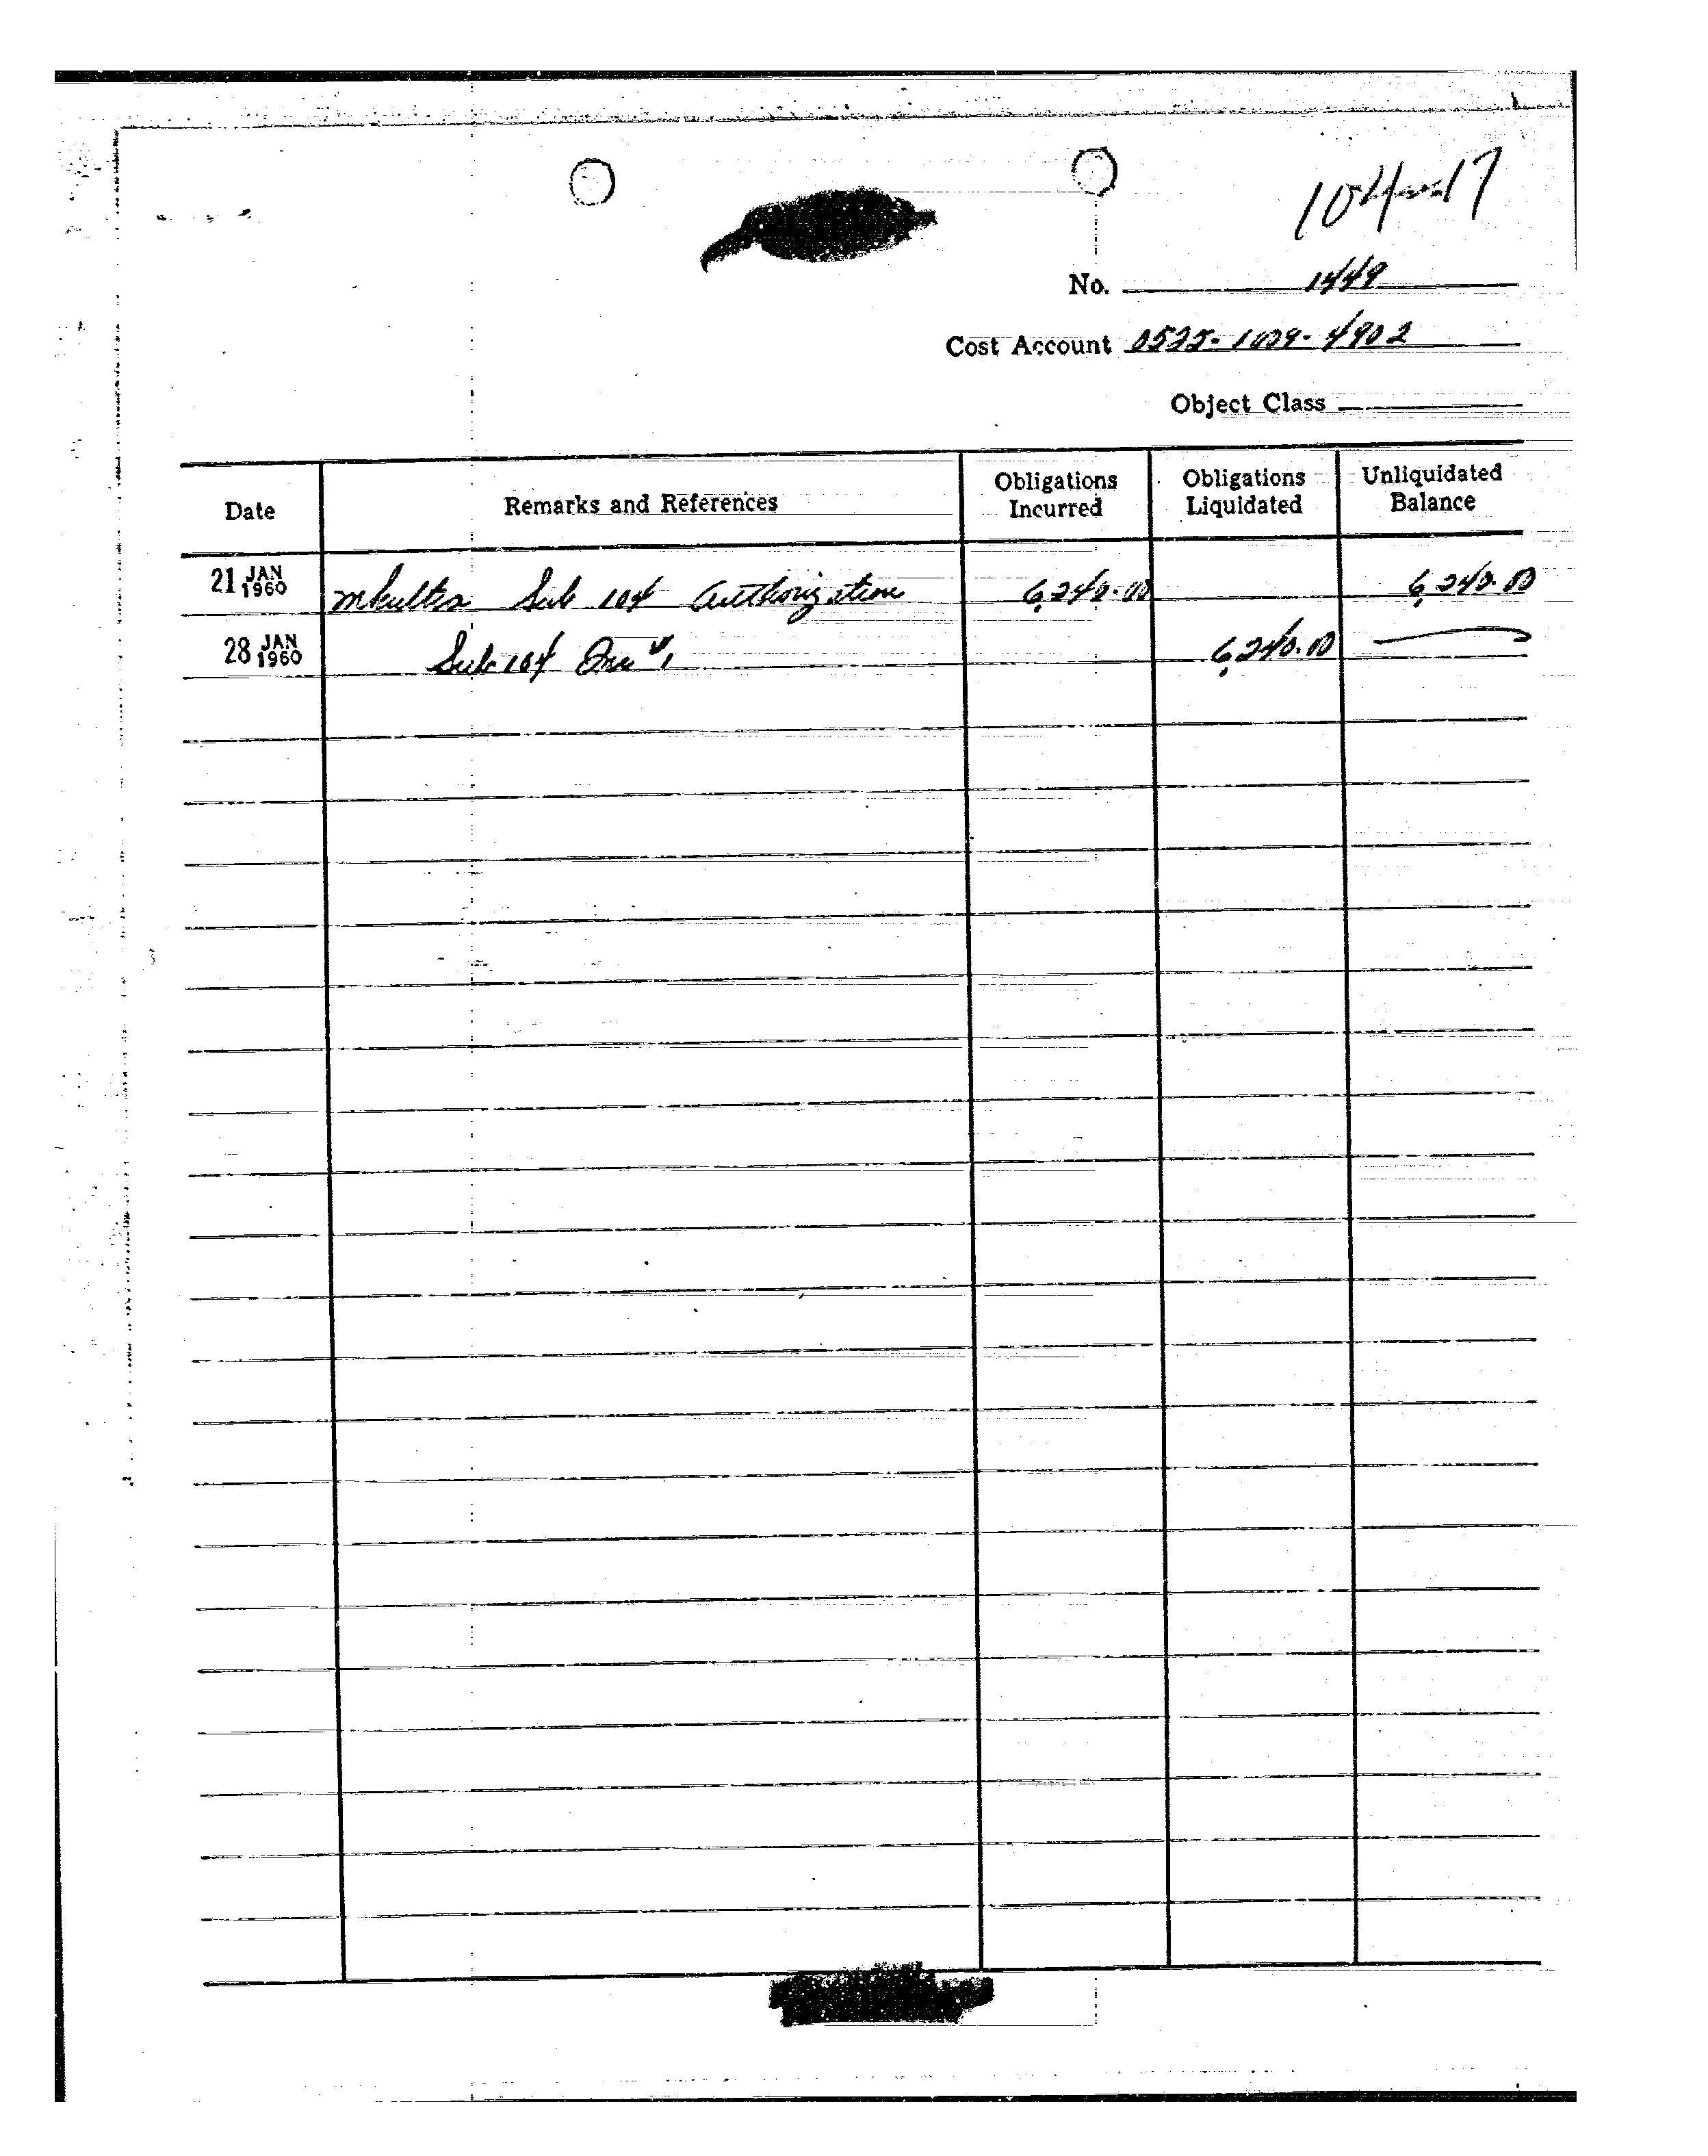 104-17
No. 1449
Cost Account 0525-1009-4902
Object Class
Date
Remarks and References
Obligations Incurred
Obligations Liquidated
Unliquidated Balance
21 JAN 1960 mkultra Sub 104 Authorization 6,240.00 6,240.00
28 JAN 1960 Sub 104 Inv #1 6,240.00 —